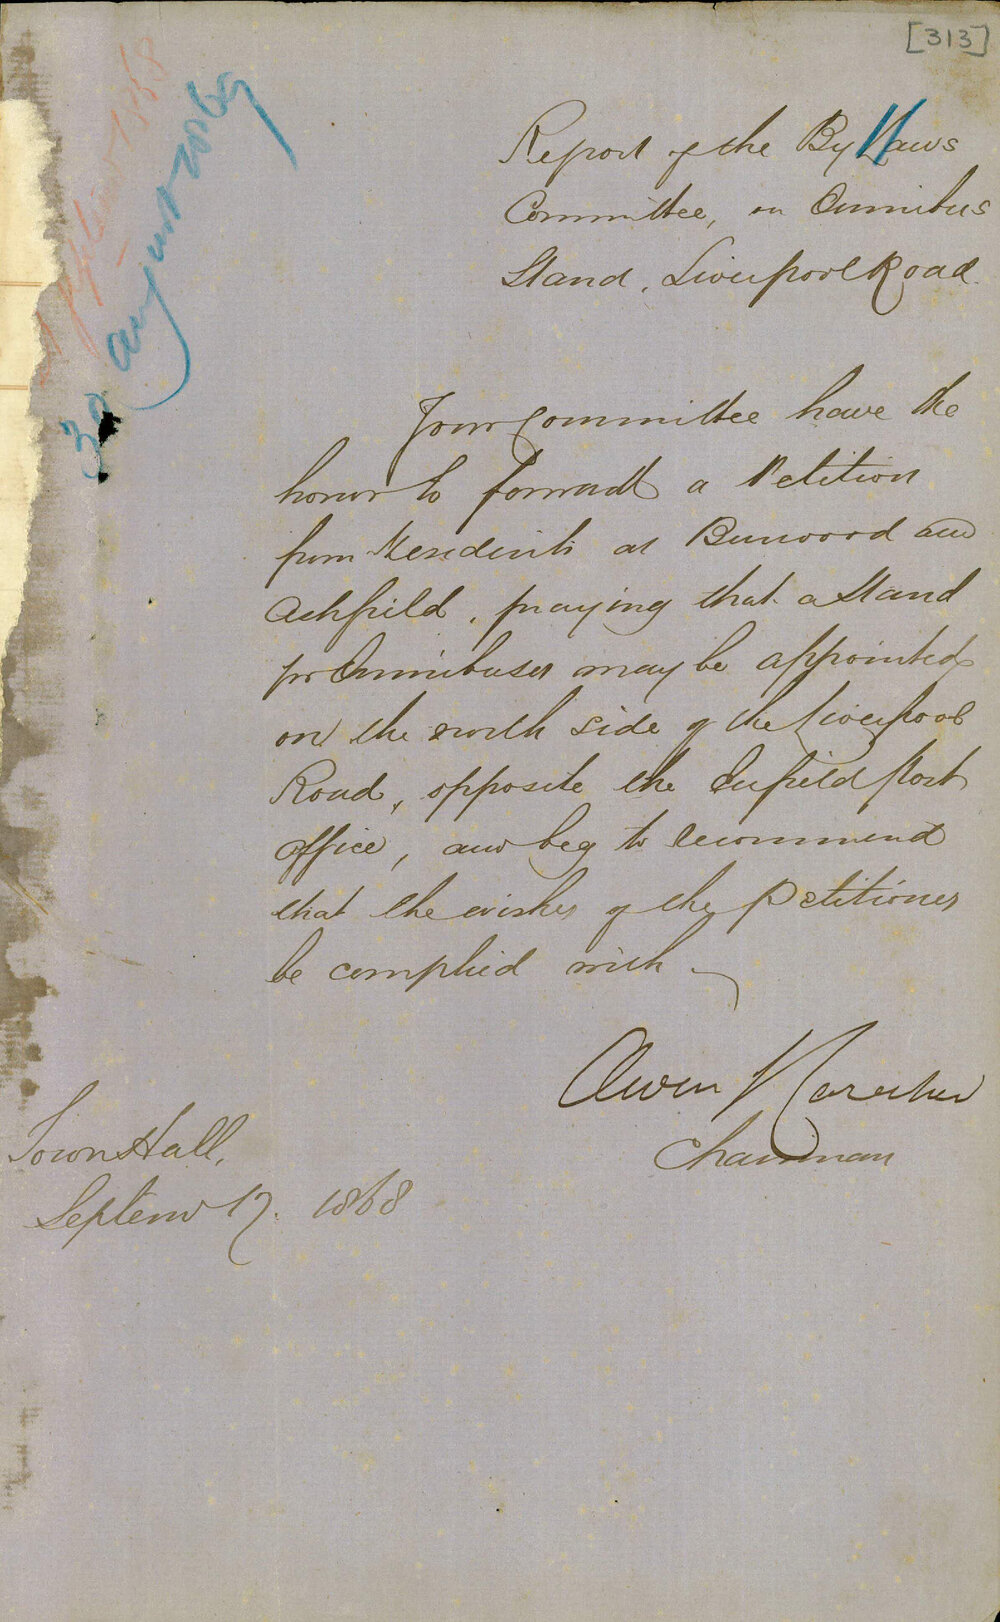 [313]
Report of the By Laws
Committee, on Omnibus
Stand, Liverpool Road.
Your Committee have the
honor to forward a Petition
from Residents at Burwood and
Ashfield, praying that a Stand
for Omnibuses may be appointed
on the north side of the Liverpool
Road, opposite the Enfield Post
office, and beg to recommend
that the wishes of the Petitioners
be complied with
Owen
Chairman
Town Hall,
Septemr 17. 1868
30 August